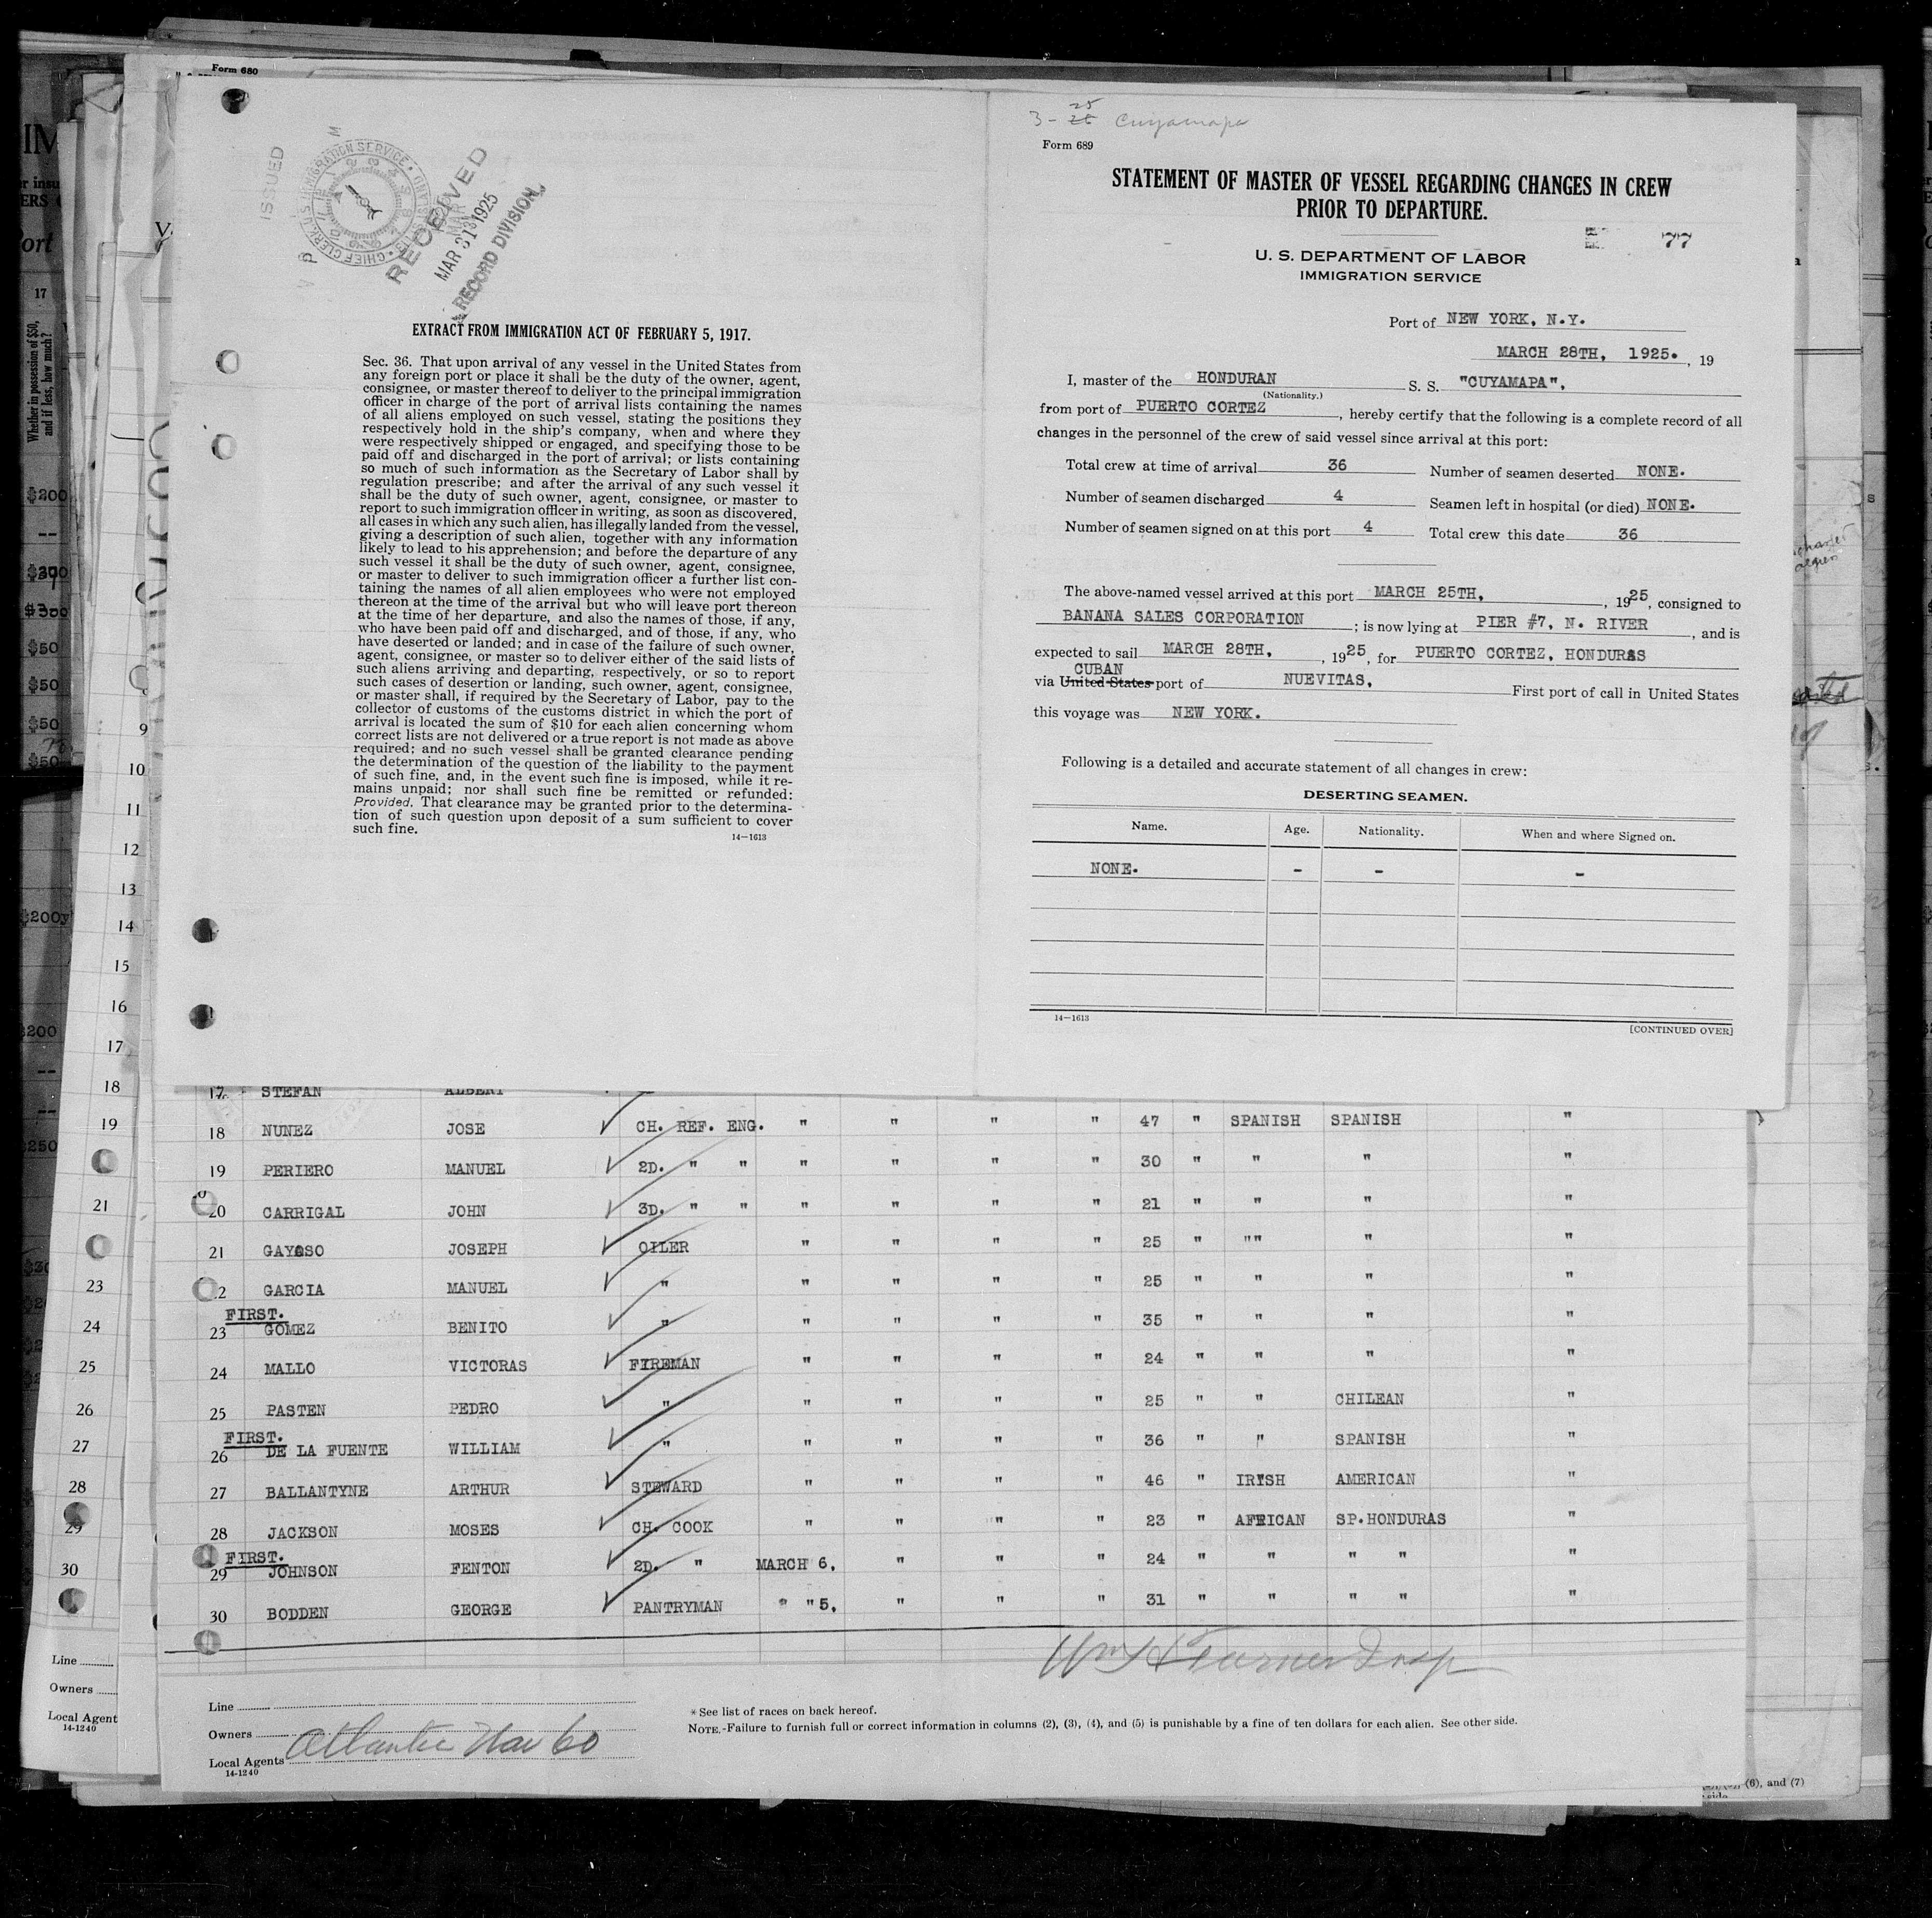 Form 680
ISSUED
CHIEF CLERK, U.S. IMMIGRATION SERVICE
RECEIVED
MAR 31 1925
RECORD DIVISION
EXTRACT FROM IMMIGRATION ACT OF FEBRUARY 5, 1917.
Sec. 36. That upon arrival of any vessel in the United States from
any foreign port or place it shall be the duty of the owner, agent,
consignee, or master thereof to deliver to the principal immigration
officer in charge of the port of arrival lists containing the names
of all aliens employed on such vessel, stating the positions they
respectively hold in the ship's company, when and where they
were respectively shipped or engaged, and specifying those to be
paid off and discharged in the port of arrival; or lists containing
so much of such information as the Secretary of Labor shall by
regulation prescribe; and after the arrival of any such vessel it
shall be the duty of such owner, agent, consignee, or master to
report to such immigration officer in writing, as soon as discovered,
all cases in which any such alien, has illegally landed from the vessel,
giving a description of such alien, together with any information
likely to lead to his apprehension; and before the departure of any
such vessel it shall be the duty of such owner, agent, consignee,
or master to deliver to such immigration officer a further list con-
taining the names of all alien employees who were not employed
thereon at the time of the arrival but who will leave port thereon
at the time of her departure, and also the names of those, if any,
who have been paid off and discharged, and of those, if any, who
have deserted or landed; and in case of the failure of such owner,
agent, consignee, or master so to deliver either of the said lists of
such aliens arriving and departing, respectively, or so to report
such cases of desertion or landing, such owner, agent, consignee,
or master shall, if required by the Secretary of Labor, pay to the
collector of customs of the customs district in which the port of
arrival is located the sum of $10 for each alien concerning whom
correct lists are not delivered or a true report is not made as above
required; and no such vessel shall be granted clearance pending
the determination of the question of the liability to the payment
of such fine, and, in the event such fine is imposed, while it re-
mains unpaid; nor shall such fine be remitted or refunded:
Provided, That clearance may be granted prior to the determina-
tion of such question upon deposit of a sum sufficient to cover
such fine.
14—1613
3-25 Cuyamapa
Form 689
STATEMENT OF MASTER OF VESSEL REGARDING CHANGES IN CREW
PRIOR TO DEPARTURE.
77
U. S. DEPARTMENT OF LABOR
IMMIGRATION SERVICE
Port of NEW YORK, N.Y.
MARCH 28TH, 1925. , 19
I, master of the HONDURAN S. S. "CUYAMAPA",
(Nationality.)
from port of PUERTO CORTEZ , hereby certify that the following is a complete record of all
changes in the personnel of the crew of said vessel since arrival at this port:
Total crew at time of arrival 36 Number of seamen deserted NONE.
Number of seamen discharged 4 Seamen left in hospital (or died) NONE.
Number of seamen signed on at this port 4 Total crew this date 36
The above-named vessel arrived at this port MARCH 25TH, , 1925, consigned to
BANANA SALES CORPORATION ; is now lying at PIER #7, N. RIVER , and is
expected to sail MARCH 28TH, , 1925, for PUERTO CORTEZ, HONDURAS
CUBAN
via United States port of NUEVITAS, First port of call in United States
this voyage was NEW YORK.
Following is a detailed and accurate statement of all changes in crew:
DESERTING SEAMEN.
Name. Age. Nationality. When and where Signed on.
NONE. - - -
14—1613
[CONTINUED OVER]
17 STEFAN ALBERT
18 NUNEZ JOSE CH. REF. ENG. " " " " 47 " SPANISH SPANISH "
19 PERIERO MANUEL 2D. " " " " " " 30 " " " "
20 CARRIGAL JOHN 3D. " " " " " " 21 " " " "
21 GAYOSO JOSEPH OILER " " " " 25 " "" " "
22 GARCIA MANUEL " " " " " 25 " " " "
FIRST.
23 GOMEZ BENITO " " " " " 35 " " " "
24 MALLO VICTORAS FIREMAN " " " " 24 " " " "
25 PASTEN PEDRO " " " " " 25 " " CHILEAN "
FIRST.
26 DE LA FUENTE WILLIAM " " " " " 36 " " SPANISH "
27 BALLANTYNE ARTHUR STEWARD " " " " 46 " IRISH AMERICAN "
28 JACKSON MOSES CH. COOK " " " " 23 " AFRICAN SP.HONDURAS "
FIRST.
29 JOHNSON FENTON 2D. " MARCH 6, " " " 24 " " " " "
30 BODDEN GEORGE PANTRYMAN " " 5, " " " 31 " " " " "
Wm H Turner Insp
Line
Owners
Local Agents Atlantic Nav Co
14-1240
* See list of races on back hereof.
NOTE.-Failure to furnish full or correct information in columns (2), (3), (4), and (5) is punishable by a fine of ten dollars for each alien. See other side.
Line
Owners
Local Agent
14-1240
9
10
11
12
13
14
15
16
17
18
19
21
23
24
25
26
27
28
29
30
17
Whether in possession of $50,
and if less, how much?
$200
$50
$50
$50
$50
(6), and (7)
side